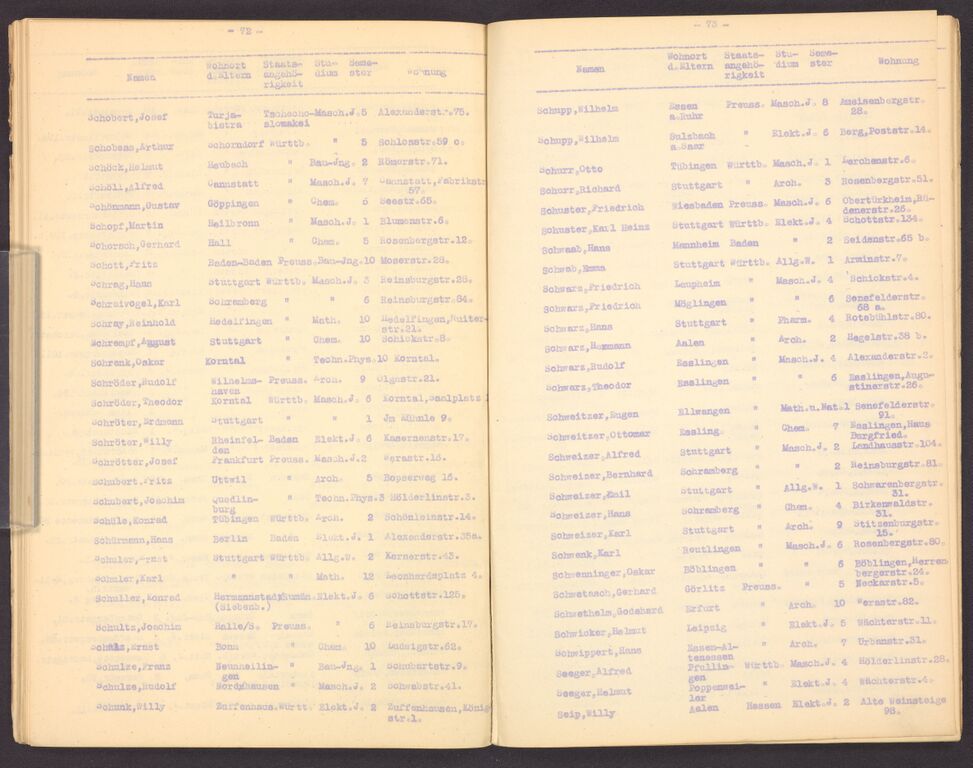 - 72 -
Namen Wohnort d.Eltern Staats-angehö-rigkeit Stu-dium Seme-ster Wohnung
Schobert,Josef Turja-bistra Tschecho-slowakei Masch.J. 5 Alexanderst.75.
Schobess,Arthur Schorndorf Württb. " 5 Schlosstr.59 c.
Schöck,Helmut Haubach " Bau-Jng. 2 Römerstr.71.
Schöll,Alfred Cannstatt " Masch.J. 7 Cannstatt,Fabrikstr
57.
Schönmann,Gustav Göppingen " Chem. 6 Seestr.65.
Schopf,Martin Heilbronn " Masch.J. 1 Blumenstr.6.
Schorsch,Gerhard Hall " Chem. 5 Rosenbergstr.12.
Schott,Fritz Baden-Baden Preuss. Bau-Jng. 10 Moserstr.28.
Schrag,Hans Stuttgart Württb. Masch.J. 3 Reinsburgstr.28.
Schraivogel,Karl Schramberg " " 6 Reinsburgstr.84.
Schray,Reinhold Hedelfingen " Math. 10 Hedelfingen,Ruiter-
str.21.
Schrempf,August Stuttgart " Chem. 10 Schickstr.8.
Schrenk,Oskar Korntal " Techn.Phys. 10 Korntal.
Schröder,Rudolf Wilhelms-haven Preuss. Arch. 9 Olgastr.21.
Schröder,Theodor Korntal Württb. Masch.J. 6 Korntal,Saalplatz
Schröter,Erdmann Stuttgart " " 1 Jm Kühnle 9.
Schröter,Willy Rheinfel-den Baden Elekt.J. 6 Kasernenstr.17.
Schrötter,Josef Frankfurt Preuss. Masch.J. 2 Werastr.15.
Schubert,Fritz Uttwil " Arch. 5 Bopserweg 15.
Schubert,Joachim Quedlin-burg " Techn.Phys. 3 Hölderlinstr.3.
Schüle,Konrad Tübingen Württb. Arch. 2 Schönleinstr.14.
Schürmann,Hans Berlin Baden Elekt.J. 1 Alexanderstr.35a.
Schuler,Ernst Stuttgart Württb. Allg.W. 2 Kernerstr.43.
Schuler,Karl " " Math. 12 Leonhardsplatz 4.
Schuller,Konrad Hermannstadt (Siebenb.) Rumän. Elekt.J. 6 Schottstr.125.
Schultz,Joachim Halle/S. Preuss. " 6 Reinsburgstr.17.
Schulz,Ernst Bonn " Chem. 10 Ludwigstr.62.
Schulze,Franz Neuaheilin-gen " Bau-Jng. 1 Schubartstr.9.
Schulze,Rudolf Nordhausen " Masch.J. 2 Schwabstr.41.
Schunk,Willy Zuffenhaus. Württ. Elekt.J. 2 Zuffenhausen,König
str.1.
- 73 -
Namen Wohnort d.Eltern Staats-angehö-rigkeit Stu-dium Seme-ster Wohnung
Schupp,Wilhelm Essen a.Ruhr Preuss. Masch.J. 8 Ameisenbergstr.
28.
Schupp,Wilhelm Sulzbach a.Saar " Elekt.J. 6 Berg,Poststr.14.
Schurr,Otto Tübingen Württb. Masch.J. 1 Lerchenstr.6.
Schurr,Richard Stuttgart " Arch. 3 Rosenbergstr.51.
Schuster,Friedrich Wiesbaden Preuss. Masch.J. 6 Obertürkheim,Rü-
denerstr.26.
Schuster,Karl Heinz Stuttgart Württb. Elekt.J. 4 Schottstr.134.
Schwaab,Hans Mannheim Baden " 2 Seidenstr.65 b.
Schwab,Emma Stuttgart Württb. Allg.W. 1 Arminstr.7.
Schwarz,Friedrich Laupheim " Masch.J. 4 Schickstr.4.
Schwarz,Friedrich Möglingen " " 6 Senefelderstr.
68 a.
Schwarz,Hans Stuttgart " Pharm. 4 Rotebühlstr.80.
Schwarz,Hermann Aalen " Arch. 2 Hegelstr.38 b.
Schwarz,Rudolf Esslingen " Masch.J. 4 Alexanderstr.2.
Schwarz,Theodor Esslingen " " 6 Esslingen,Augu-
stinerstr.26.
Schweitzer,Eugen Ellwangen " Math.u.Nat. 1 Senefelderstr.
91.
Schweitzer,Ottomar Essling. " Chem. 7 Esslingen,Haus
Burgfried.
Schweizer,Alfred Stuttgart " Masch.J. 2 Landhausstr.104.
Schweizer,Bernhard Schramberg " " 2 Reinsburgstr.81.
Schweizer,Emil Stuttgart " Allg.W. 1 Schwarenbergstr.
31.
Schweizer,Hans Schramberg " Chem. 4 Birkenwaldstr.
31.
Schweizer,Karl Stuttgart " Arch. 9 Stitzenburgstr.
15.
Schwenk,Karl Reutlingen " Masch.J. 6 Rosenbergstr.80.
Schwenninger,Oskar Böblingen " " 6 Böblingen,Herren
bergerstr.24.
Schwetasch,Gerhard Görlitz Preuss. " 5 Neckarstr.5.
Schwethelm,Godehard Erfurt " Arch. 10 Werastr.82.
Schwicker,Helmut Leipzig " Elekt.J. 5 Wächterstr.11.
Schwippert,Hans Essen-Al-tenessen " Arch. 7 Urbanstr.31.
Seeger,Alfred Pfullin-gen Württb. Masch.J. 4 Hölderlinstr.28.
Seeger,Helmut Poppenwei-ler " Elekt.J. 4 Wächterstr.4.
Seip,Willy Aalen Hessen Elekt.J. 2 Alte Weinsteige
98.